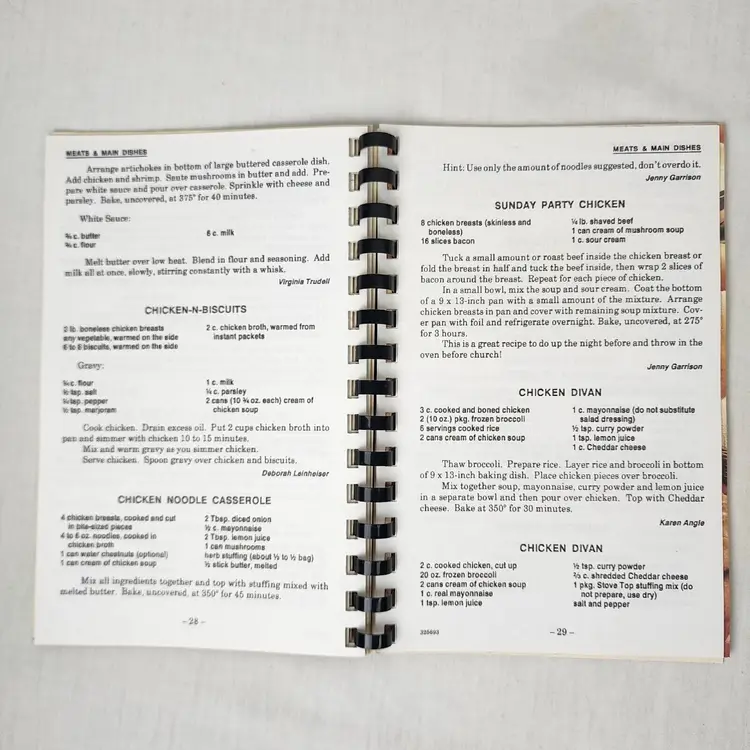 MEATS & MAIN DISHES
Arrange artichokes in bottom of large buttered casserole dish.
Add chicken and shrimp. Saute mushrooms in butter and add. Pre-
pare white sauce and pour over casserole. Sprinkle with cheese and
parsley. Bake, uncovered, at 375° for 40 minutes.
White Sauce:
¾ c. butter
¾ c. flour
6 c. milk
Melt butter over low heat. Blend in flour and seasoning. Add
milk all at once, slowly, stirring constantly with a whisk.
Virginia Trudell
CHICKEN-N-BISCUITS
2 lb. boneless chicken breasts
any vegetable, warmed on the side
6 to 8 biscuits, warmed on the side
2 c. chicken broth, warmed from
instant packets
Gravy:
¼ c. flour
½ tsp. salt
¼ tsp. pepper
½ tsp. marjoram
1 c. milk
¼ c. parsley
2 cans (10 ¾ oz. each) cream of
chicken soup
Cook chicken. Drain excess oil. Put 2 cups chicken broth into
pan and simmer with chicken 10 to 15 minutes.
Mix and warm gravy as you simmer chicken.
Serve chicken. Spoon gravy over chicken and biscuits.
Deborah Leinheiser
CHICKEN NOODLE CASSEROLE
4 chicken breasts, cooked and cut
in bite-sized pieces
4 to 6 oz. noodles, cooked in
chicken broth
1 can water chestnuts (optional)
1 can cream of chicken soup
2 Tbsp. diced onion
½ c. mayonnaise
2 Tbsp. lemon juice
1 can mushrooms
herb stuffing (about ⅓ to ½ bag)
½ stick butter, melted
Mix all ingredients together and top with stuffing mixed with
melted butter. Bake, uncovered, at 350° for 45 minutes.
– 28 –
MEATS & MAIN DISHES
Hint: Use only the amount of noodles suggested, don't overdo it.
Jenny Garrison
SUNDAY PARTY CHICKEN
8 chicken breasts (skinless and
boneless)
16 slices bacon
¼ lb. shaved beef
1 can cream of mushroom soup
1 c. sour cream
Tuck a small amount or roast beef inside the chicken breast or
fold the breast in half and tuck the beef inside, then wrap 2 slices of
bacon around the breast. Repeat for each piece of chicken.
In a small bowl, mix the soup and sour cream. Coat the bottom
of a 9 x 13-inch pan with a small amount of the mixture. Arrange
chicken breasts in pan and cover with remaining soup mixture. Cov-
er pan with foil and refrigerate overnight. Bake, uncovered, at 275°
for 3 hours.
This is a great recipe to do up the night before and throw in the
oven before church!
Jenny Garrison
CHICKEN DIVAN
3 c. cooked and boned chicken
2 (10 oz.) pkg. frozen broccoli
6 servings cooked rice
2 cans cream of chicken soup
1 c. mayonnaise (do not substitute
salad dressing)
½ tsp. curry powder
1 tsp. lemon juice
1 c. Cheddar cheese
Thaw broccoli. Prepare rice. Layer rice and broccoli in bottom
of 9 x 13-inch baking dish. Place chicken pieces over broccoli.
Mix together soup, mayonnaise, curry powder and lemon juice
in a separate bowl and then pour over chicken. Top with Cheddar
cheese. Bake at 350° for 30 minutes.
Karen Angle
CHICKEN DIVAN
2 c. cooked chicken, cut up
20 oz. frozen broccoli
2 cans cream of chicken soup
1 c. real mayonnaise
1 tsp. lemon juice
½ tsp. curry powder
⅔ c. shredded Cheddar cheese
1 pkg. Stove Top stuffing mix (do
not prepare, use dry)
salt and pepper
325693
– 29 –